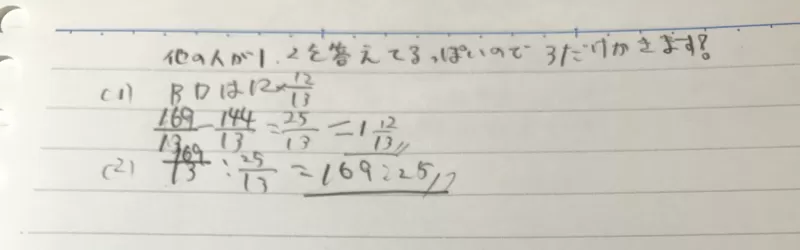 他の人が1.2を答えてるっぽいので 3だけかきます?
(1) BDは12×12/13
169/13-144/13=25/13=1 12/13//
(2) 169/13:25/13=169:25//